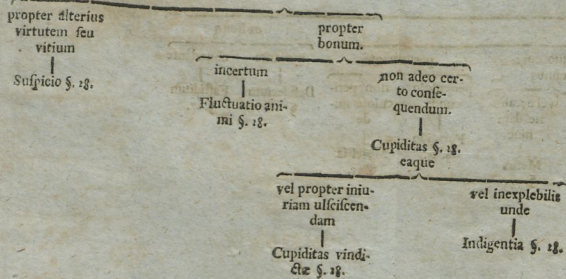 propter alterius
virtutem seu
vitium
Suſpicio §. 18.
propter
bonum.
incertum
Fluctuatio ani-
mi §. 18.
non adeo cer-
to conſe-
quendum.
Cupiditas §. 18.
eaque
vel propter iniu-
riam ulſciſcen-
dam
Cupiditas vindi-
ctæ §. 18.
vel inexplebilis
unde
Indigentia §. 18.